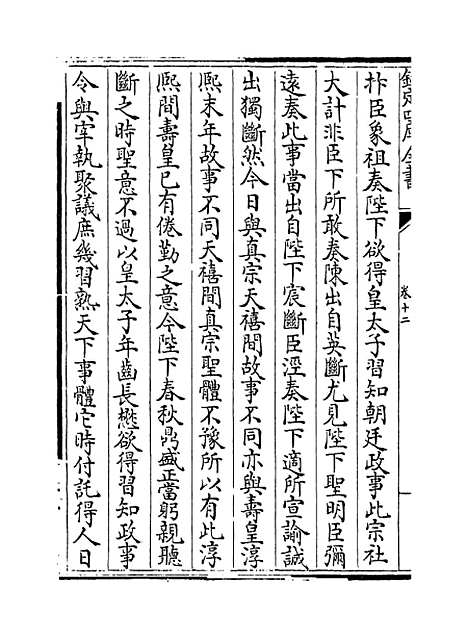 欽定四庫全書
卷十二
抃臣象祖奏陛下欲得皇太子習知朝廷政事此宗社
大計非臣下所敢奏陳出自英斷尤見陛下聖明臣彌
遠奏此事當出自陛下宸斷臣涇奏陛下適所宣諭誠
出獨斷然今日與真宗天禧間故事不同亦與壽皇淳
熙末年故事不同天禧間真宗聖體不豫所以有此淳
熙間壽皇已有倦勤之意今陛下春秋鼎盛正當躬親聽
斷之時聖意不過以皇太子年齒長懋欲得習知政事
令與宰執聚議庶幾習熟天下事體它時付託得人日